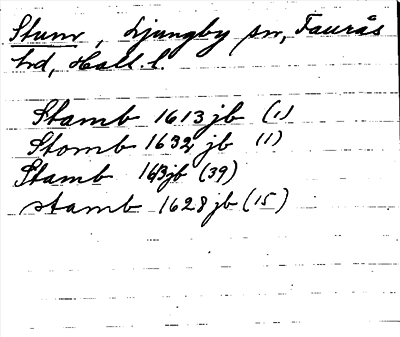 Stamb, Ljungby sn, Faurås
hd, Hall. l.
Stamb 1613 jb (1)
Stomb 1632 jb (1)
Stamb jb (39)
stamb 1628 jb (15)